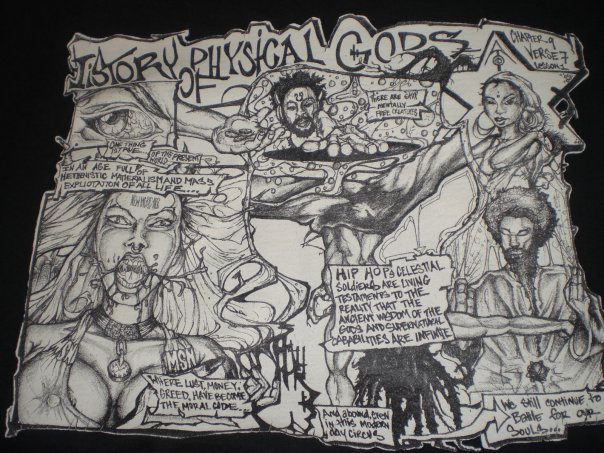 ISTORY OF PHYSICAL GODS
CHAPTER 9
VERSE 7
LESSON 1
THERE ARE STILL
MENTALLY
FREE CREATURES
ONE THING
IS TRUE
OF THE PRESENT
WORLD
IN AN AGE FULL OF
HEDONISTIC MATERIALISM AND MASS
EXPLOITATION OF ALL LIFE....
MGM
WHERE LUST, MONEY,
GREED, HAVE BECOME
THE MORAL CODE.
HIP HOP'S CELESTIAL
SOLDIERS ARE LIVING
TESTAMENTS TO THE
REALITY THAT THE
ANCIENT WISDOM OF THE
GODS AND SUPERNATURAL
CAPABILITIES ARE INFINITE
And abound, even
in this modern
day circus
WE STILL CONTINUE TO
BATTLE FOR OUR
SOULS...